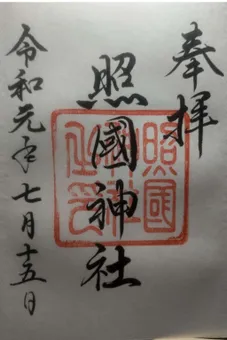 奉拝
照國神社
照國神社之印
令和元年七月十五日